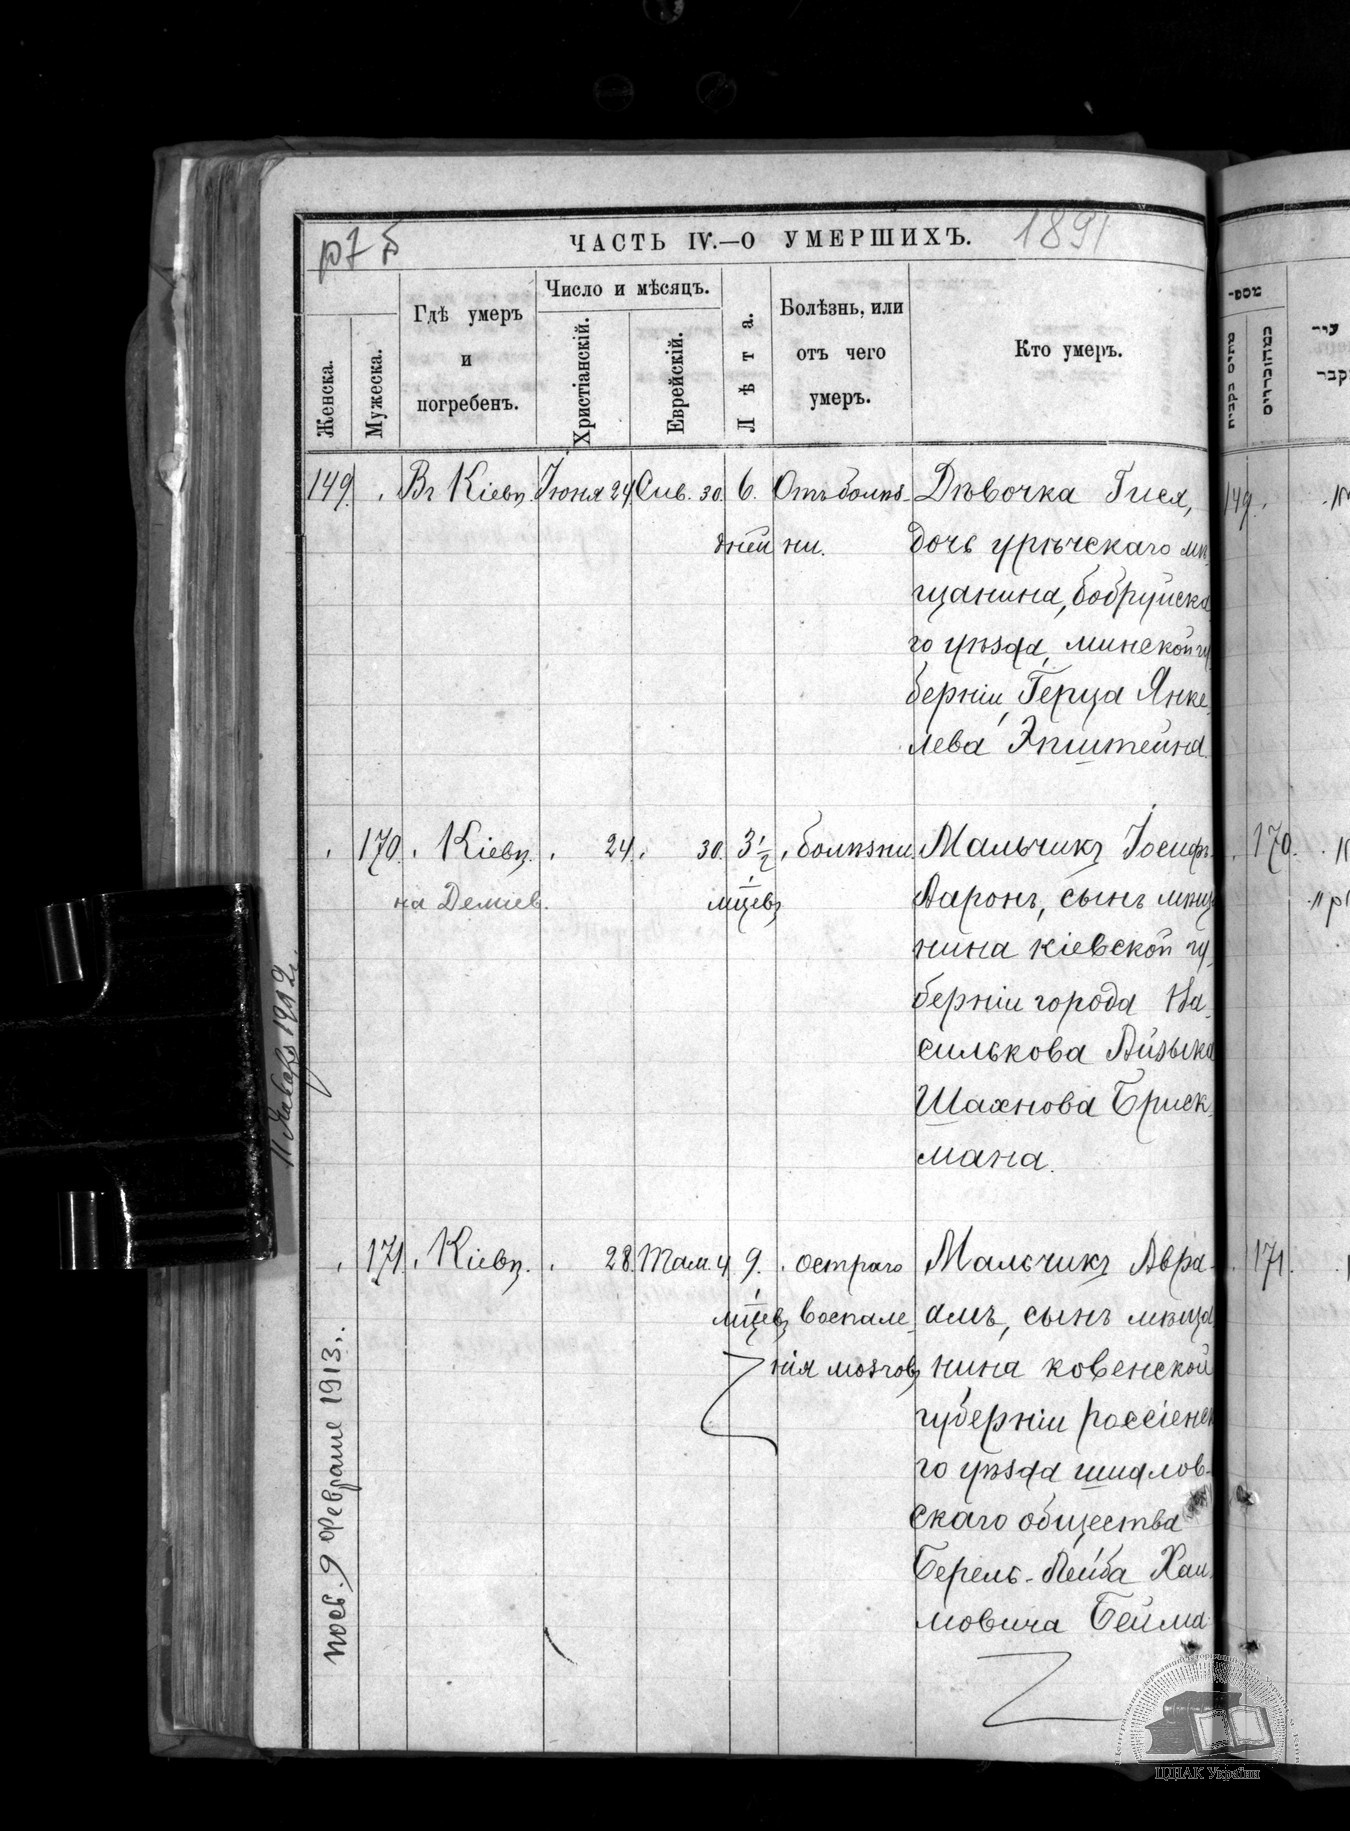 ЧАСТЬ IV.—О УМЕРШИХЪ. 1891
Женска.
Мужеска.
Гдѣ умеръ
и
погребенъ.
Число и мѣсяцъ.
Христіанскій.
Еврейскій.
Лѣта.
Болѣзнь, или
отъ чего
умеръ.
Кто умеръ.
149. Въ Кіевѣ Іюня 24 Сив. 30. 6. Отъ болѣз- Дѣвочка Гися,
дней ни. дочь урѣчскаго мѣ-
щанина, бобруйска-
го уѣзда, минской гу-
берніи, Герца Янке-
лева Эпштейна.
170. Кіевѣ. 24. 30. 3½ болѣзни. Мальчикъ Іосифъ-
на Деміев. мцевъ Ааронъ, сынъ мѣща-
нина кіевской гу-
берніи города Ва-
силькова Айзыка
Шахнова Бриск-
мана.
171. Кіевѣ. 28. Там. 4. 9. остраго Мальчикъ Авра-
мцевъ воспале- амъ, сынъ мѣща-
нія мозговъ нина ковенской
губерніи россіенска-
го уѣзда шидлов-
скаго общества
Берель-Лейба Хаи-
мовича Бейма
11 Январь 1912 г.
посв. 9 Февраля 1913.
149.
170.
171.
ЦДІАК України